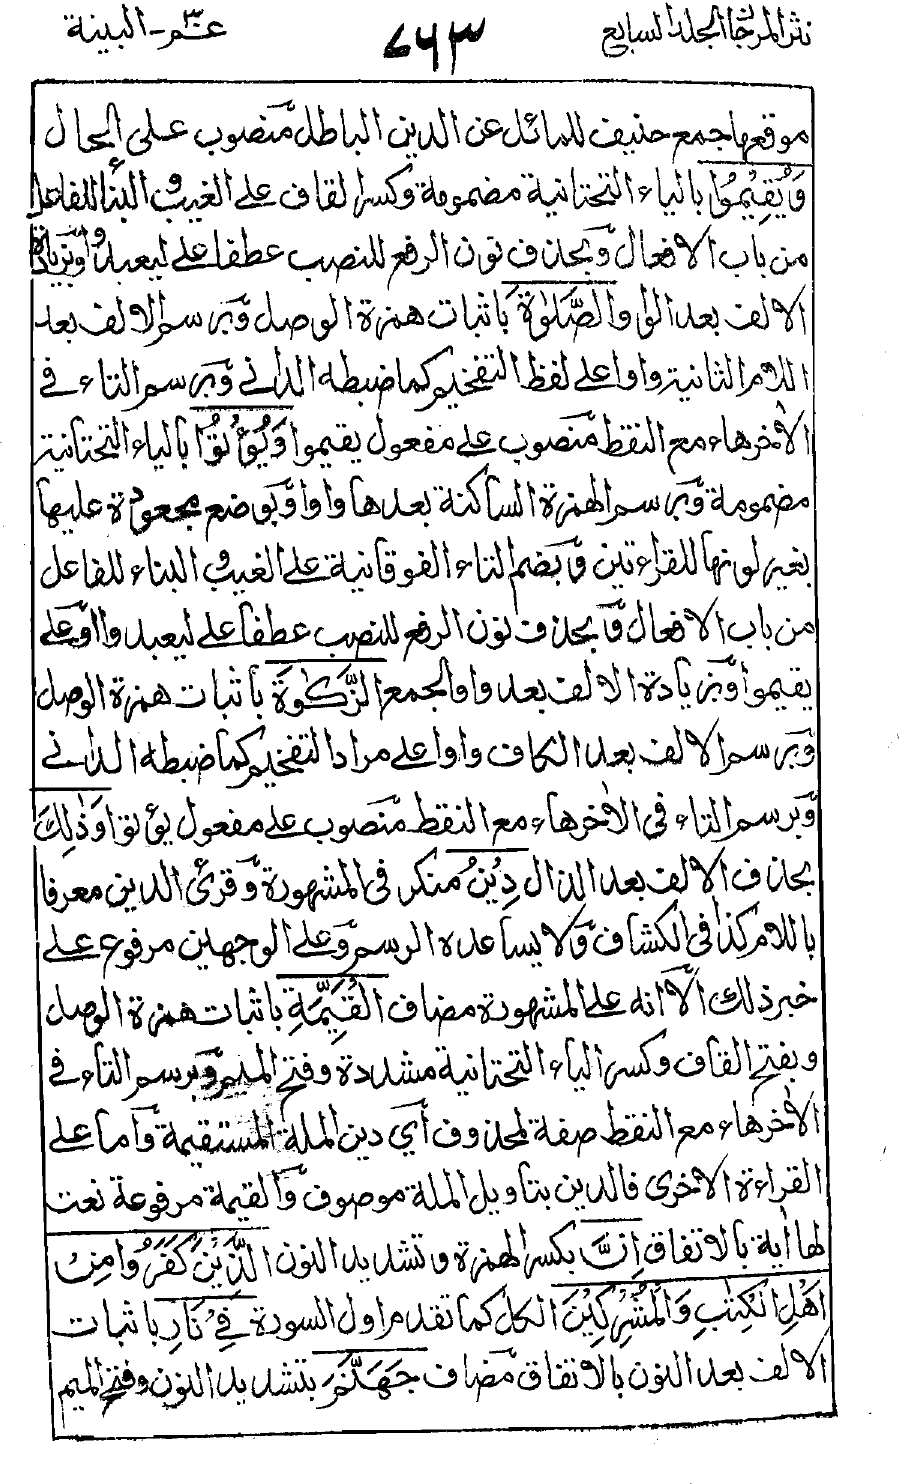 نثر المرجان المجلد السابع
٧٦٣
عم٣۰ - البينة
موقعها جمع حنيف للمائل عن الدين الباطل منصوب على الحال
وَيُقِيْمُوا بالياء التحتانية مضمومة وكسر القاف على الغيب والبناء للفاعل
من باب الافعال وبحذف نون الرفع للنصب عطفا على ليعبدوا وبزيادة
الالف بعد الواو الصَّلٰوةَ باثبات همزة الوصل وبرسم الالف بعد
اللام الثانية واوا على لفظ التفخيم كما ضبطه الداني وبرسم التاء في
الاٰخرهاء مع النقط منصوب على مفعول يقيموا وَيُؤْتُوا بالياء التحتانية
مضمومة وبرسم الهمزة الساكنة بعدها واوا وبوضع مجعودة عليها
بغير لونها للقراءتين وبضم التاء الفوقانية على الغيب والبناء للفاعل
من باب الافعال وبحذف نون الرفع للنصب عطفا على ليعبدوا او على
يقيموا وبزيادة الالف بعد واو الجمع الزَّكٰوةَ باثبات همزة الوصل
وبرسم الالف بعد الكاف واوا على مراد التفخيم كما ضبطه الداني
وبرسم التاء في الاٰخرهاء مع النقط منصوب على مفعول يؤتوا وَذٰلِكَ
بحذف الالف بعد الذال دِيْنُ منكر في المشهورة وقرئ الدين معرفا
باللام كذا في الكشاف ولا يساعده الرسم وعلى الوجهين مرفوع على
خبر ذلك الا انه على المشهورة مضاف القَيِّمَةِ باثبات همزة الوصل
وبفتح القاف وكسر الياء التحتانية مشددة وفتح الميم وبرسم التاء في
الاٰخرهاء مع النقط صفة لمحذوف أي دين الملة المستقيمة وأما على
القراءة الاخرى فالدين بتأويل الملة موصوف والقيمة مرفوعة نعت
لها اٰية بالاتفاق اِنَّ بكسر الهمزة وتشديد النون الَّذِيْنَ كَفَرُوْا مِنْ
اَهْلِ الْكِتٰبِ وَالْمُشْرِكِيْنَ الكل كما تقدم اول السورة فِيْ نَارِ باثبات
الالف بعد النون بالاتفاق مضاف جَهَنَّمَ بتشديد النون وفتح الميم